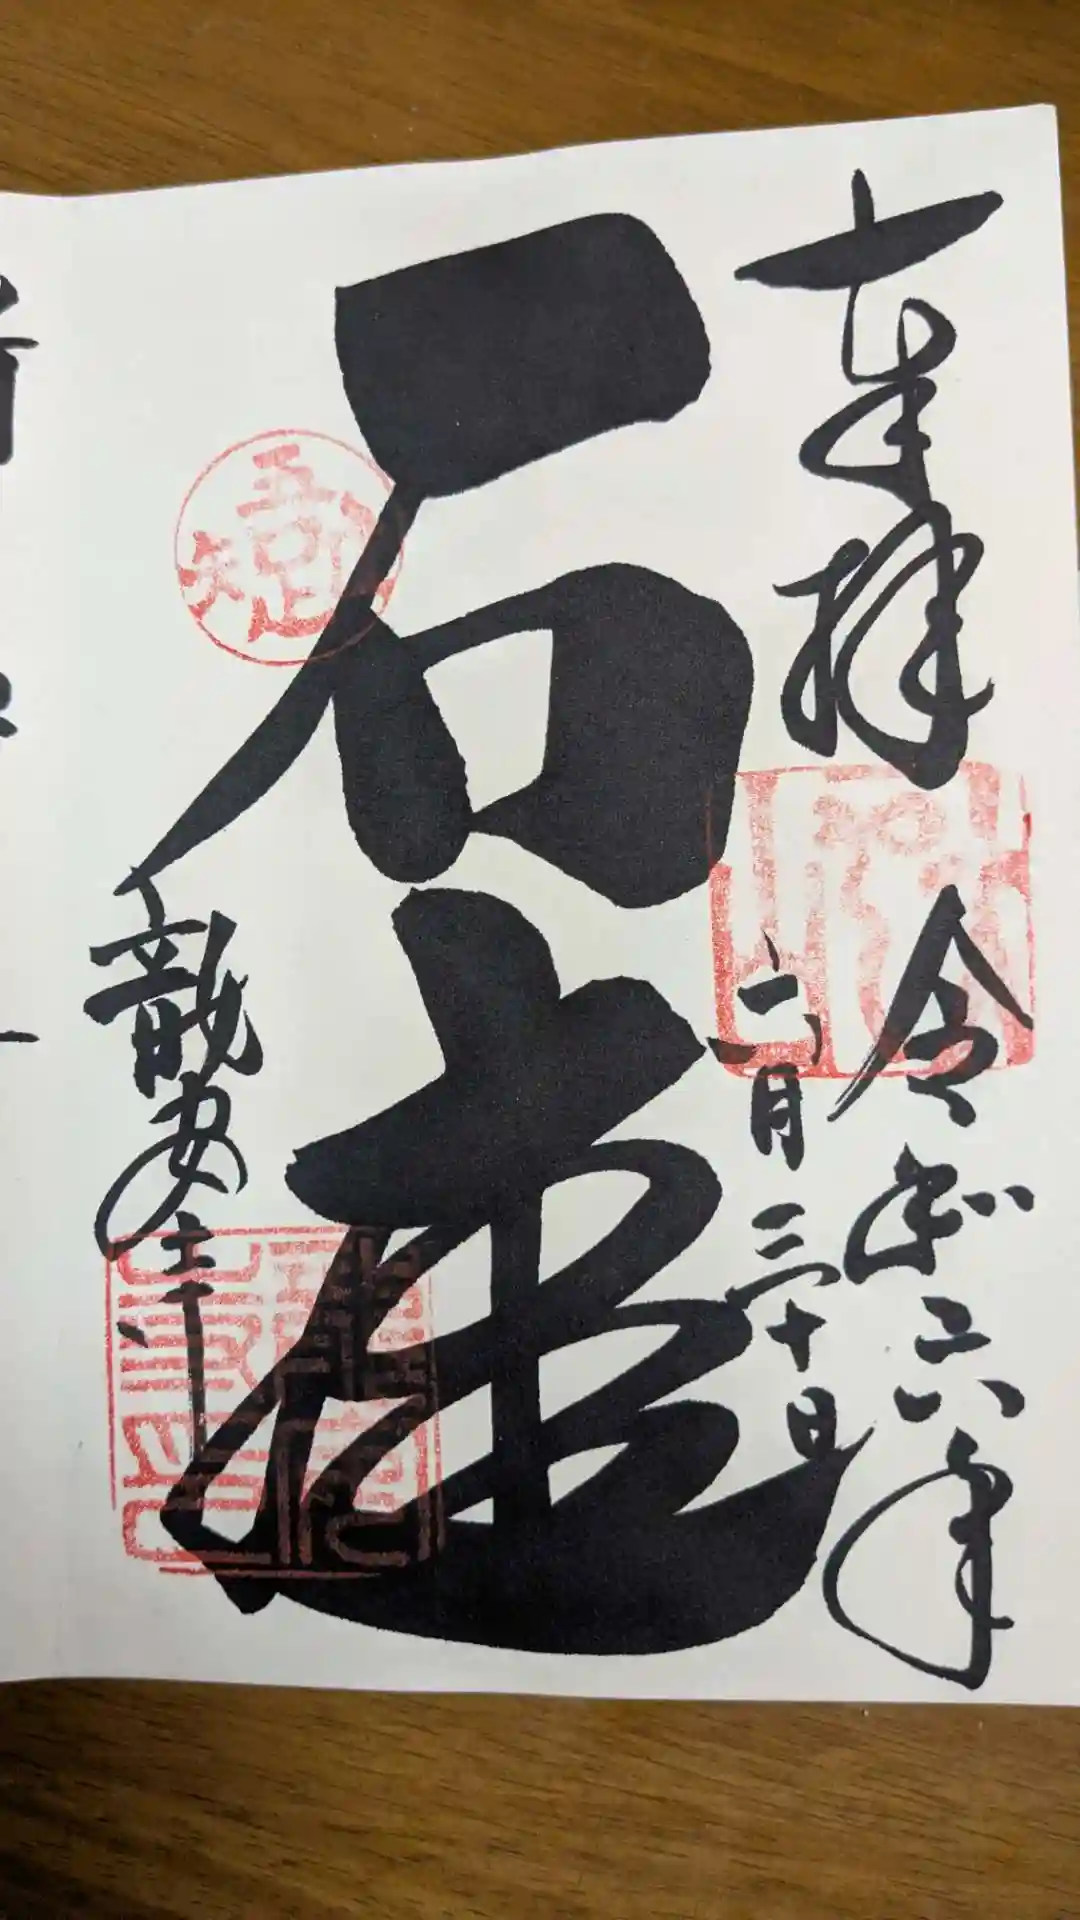 奉拝
令和六年
六月三十日
石庭
吾唯足知
龍安寺